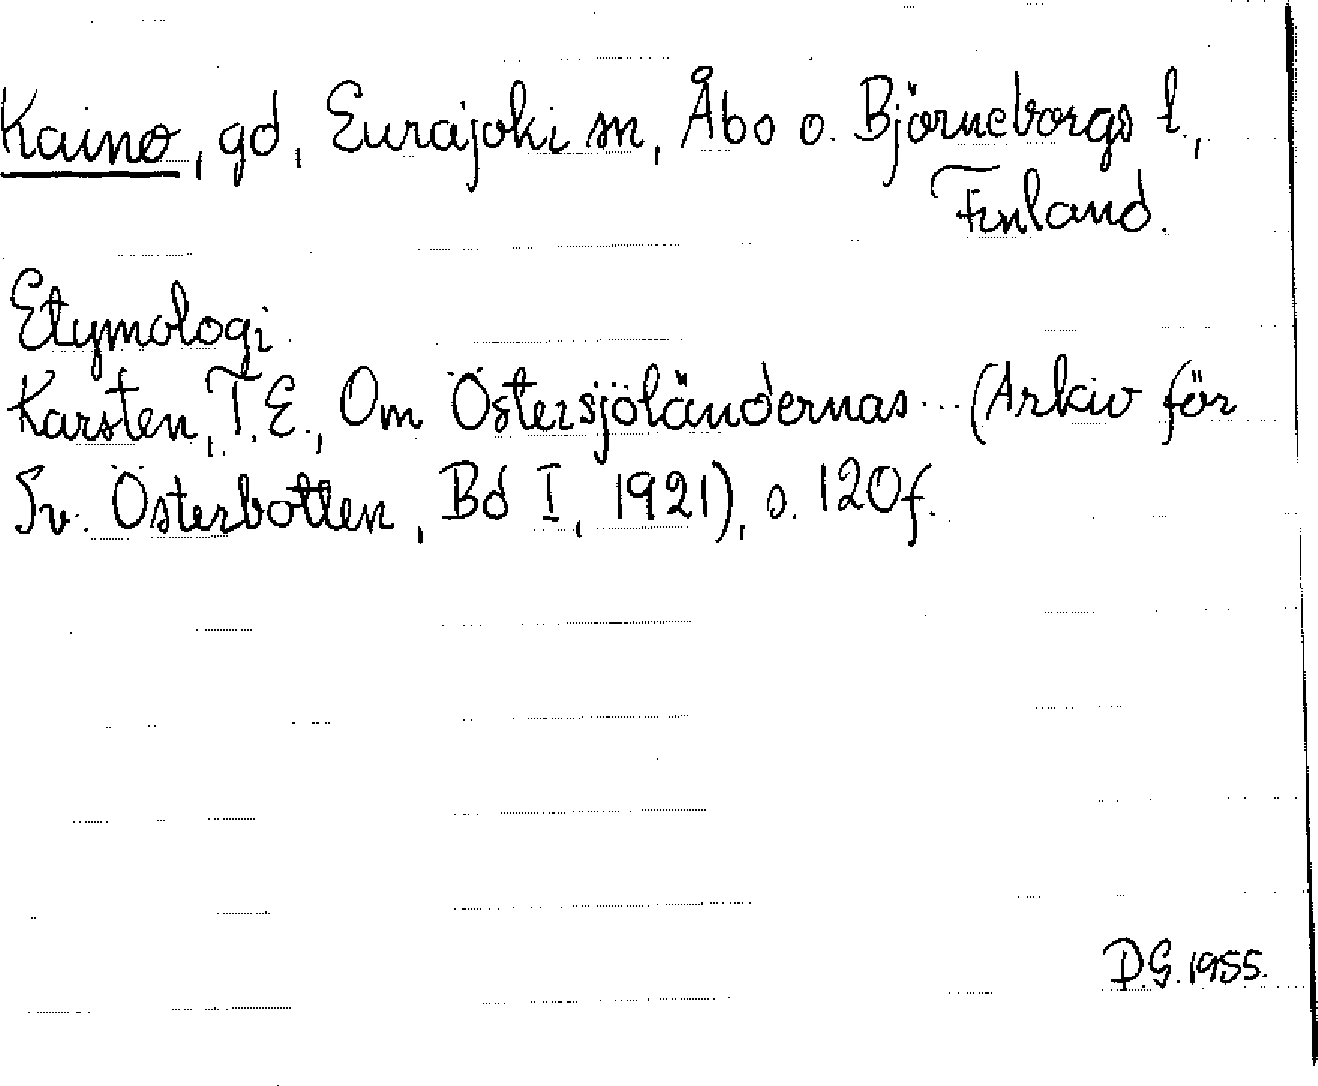 Kaino, gd, Eurajoki sn, Åbo o. Björneborgs l.,
Finland.
Etymologi.
Karsten, T.E., Om Östersjöländernas ... (Arkiv för
Sv. Österbotten, Bd I, 1921), s. 120f.
D.G. 1955.